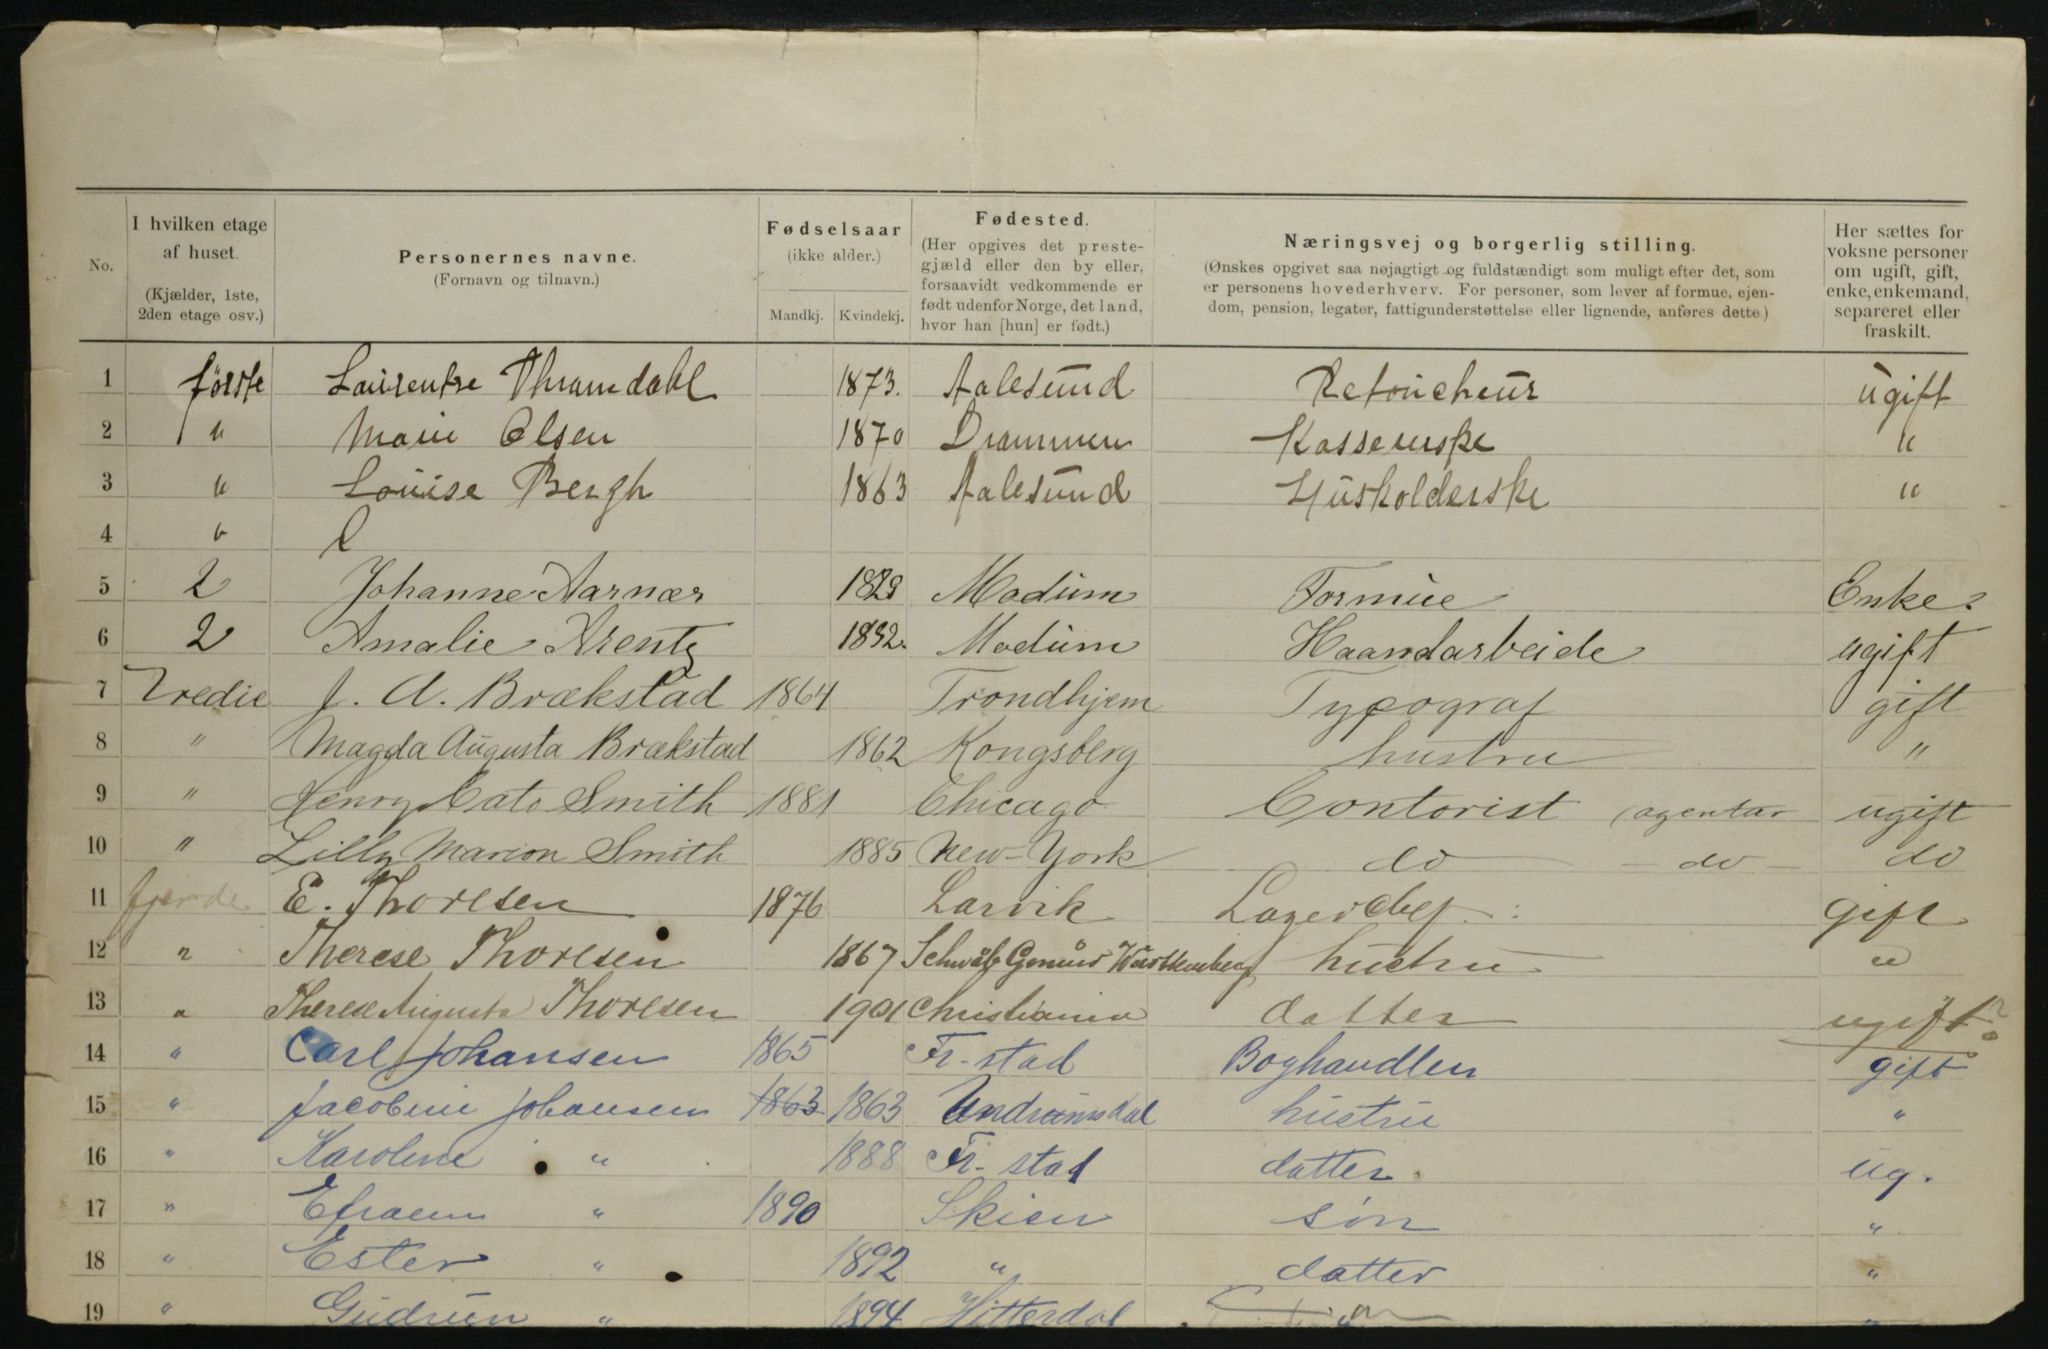 No.
I hvilken etage af huset.
(Kjælder, 1ste, 2den etage osv.)
Personernes navne.
(Fornavn og tilnavn.)
Fødselsaar
(ikke alder.)
Mandkj. Kvindekj.
Fødested.
(Her opgives det preste-
gjæld eller den by eller,
forsaavidt vedkommende er
født udenfor Norge, det land,
hvor han [hun] er født.)
Næringsvej og borgerlig stilling.
(Ønskes opgivet saa nøjagtigt og fuldstændigt som muligt efter det, som
er personens hovederhverv. For personer, som lever af formue, ejen-
dom, pension, legater, fattigunderstøttelse eller lignende, anføres dette.)
Her sættes for
voksne personer
om ugift, gift,
enke, enkemand,
separeret eller
fraskilt.
1 første Laurentse Thramdahl 1873. Aalesund Retoucheur ugift
2 " Marie Olsen 1870 Drammen Kasserske "
3 " Louise Bergh 1863 Aalesund Husholderske "
4 "
5 2 Johanne Aarnær 1829 Modum Formue Enke.
6 2 Amalie Arentz 1832. Modum Haandarbeide ugift
7 Tredie J. A. Brækstad 1864 Trondhjem Typograf gift
8 " Magda Augusta Brækstad 1862 Kongsberg hustru "
9 " Henry Cato Smith 1881 Chicago Contorist (agentur ugift
10 " Lilly Marion Smith 1885 New-York do do do
11 fjerde E. Thoresen 1876 Larvik Lagerchef gift
12 " Therese Thoresen 1867 Schwäb Gmünd Württemberg hustru "
13 " Therese Augusta Thoresen 1901 Christiania datter ugift?
14 " Carl Johansen 1865 Fr-stad Boghandler gift
15 " Jacobine Johansen 1863 1863 hustru "
16 " Karoline " 1888 Fr-stad datter ug.
17 " Efraem " 1890 Skien søn "
18 " Ester " 1892 " datter "
19 " Gudrun " 1894 Hitterdal "